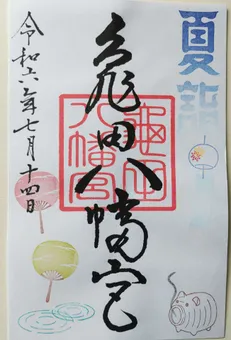 夏詣
亀田八幡宮
亀田八幡宮
令和六年七月十四日